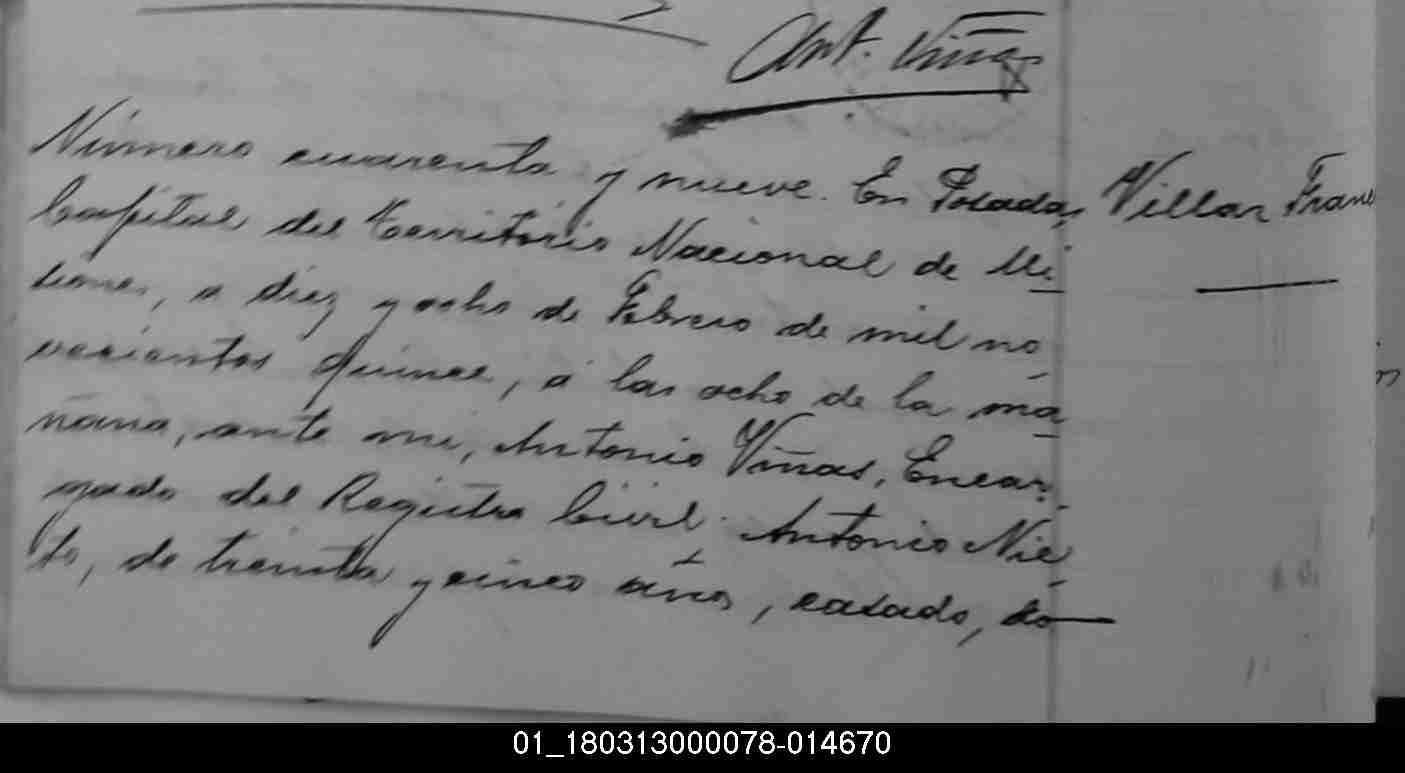 Ant. Viñas
Número cuarenta y nueve. En Posadas, Villar Fran
Capital del Territorio Nacional de Mi
siones, a diez y ocho de Febrero de mil no
vecientos quince, á las ocho de la ma
ñana, ante mi, Antonio Viñas, Encar
gado del Registro Civil. Antonio Nie
to, de treinta y cinco años, casado, do
01_180313000078-014670